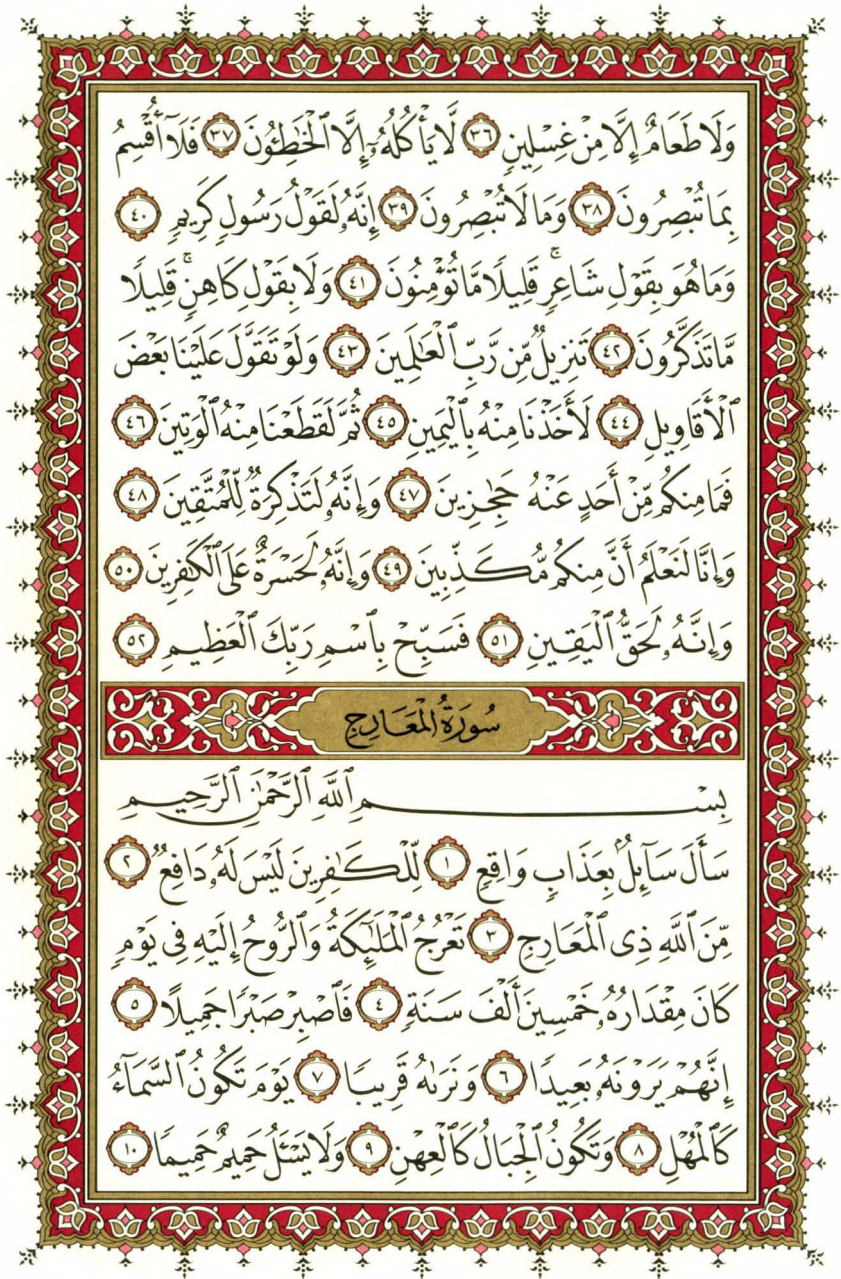 وَلَا طَعَامٌ إِلَّا مِنْ غِسْلِينٍ ٣٦ لَّا يَأْكُلُهُۥٓ إِلَّا ٱلْخَٰطِـُٔونَ ٣٧ فَلَآ أُقْسِمُ
بِمَا تُبْصِرُونَ ٣٨ وَمَا لَا تُبْصِرُونَ ٣٩ إِنَّهُۥ لَقَوْلُ رَسُولٍ كَرِيمٍ ٤٠
وَمَا هُوَ بِقَوْلِ شَاعِرٍ ۚ قَلِيلًا مَّا تُؤْمِنُونَ ٤١ وَلَا بِقَوْلِ كَاهِنٍ ۚ قَلِيلًا
مَّا تَذَكَّرُونَ ٤٢ تَنزِيلٌ مِّن رَّبِّ ٱلْعَٰلَمِينَ ٤٣ وَلَوْ تَقَوَّلَ عَلَيْنَا بَعْضَ
ٱلْأَقَاوِيلِ ٤٤ لَأَخَذْنَا مِنْهُ بِٱلْيَمِينِ ٤٥ ثُمَّ لَقَطَعْنَا مِنْهُ ٱلْوَتِينَ ٤٦
فَمَا مِنكُم مِّنْ أَحَدٍ عَنْهُ حَٰجِزِينَ ٤٧ وَإِنَّهُۥ لَتَذْكِرَةٌ لِّلْمُتَّقِينَ ٤٨
وَإِنَّا لَنَعْلَمُ أَنَّ مِنكُم مُّكَذِّبِينَ ٤٩ وَإِنَّهُۥ لَحَسْرَةٌ عَلَى ٱلْكَٰفِرِينَ ٥٠
وَإِنَّهُۥ لَحَقُّ ٱلْيَقِينِ ٥١ فَسَبِّحْ بِٱسْمِ رَبِّكَ ٱلْعَظِيمِ ٥٢
سُورَةُ الْمَعَارِجِ
بِسْمِ ٱللَّهِ ٱلرَّحْمَٰنِ ٱلرَّحِيمِ
سَأَلَ سَآئِلٌۢ بِعَذَابٍ وَاقِعٍ ١ لِّلْكَٰفِرِينَ لَيْسَ لَهُۥ دَافِعٌ ٢
مِّنَ ٱللَّهِ ذِى ٱلْمَعَارِجِ ٣ تَعْرُجُ ٱلْمَلَٰٓئِكَةُ وَٱلرُّوحُ إِلَيْهِ فِى يَوْمٍ
كَانَ مِقْدَارُهُۥ خَمْسِينَ أَلْفَ سَنَةٍ ٤ فَٱصْبِرْ صَبْرًا جَمِيلًا ٥
إِنَّهُمْ يَرَوْنَهُۥ بَعِيدًا ٦ وَنَرَىٰهُ قَرِيبًا ٧ يَوْمَ تَكُونُ ٱلسَّمَآءُ
كَٱلْمُهْلِ ٨ وَتَكُونُ ٱلْجِبَالُ كَٱلْعِهْنِ ٩ وَلَا يَسْـَٔلُ حَمِيمٌ حَمِيمًا ١٠